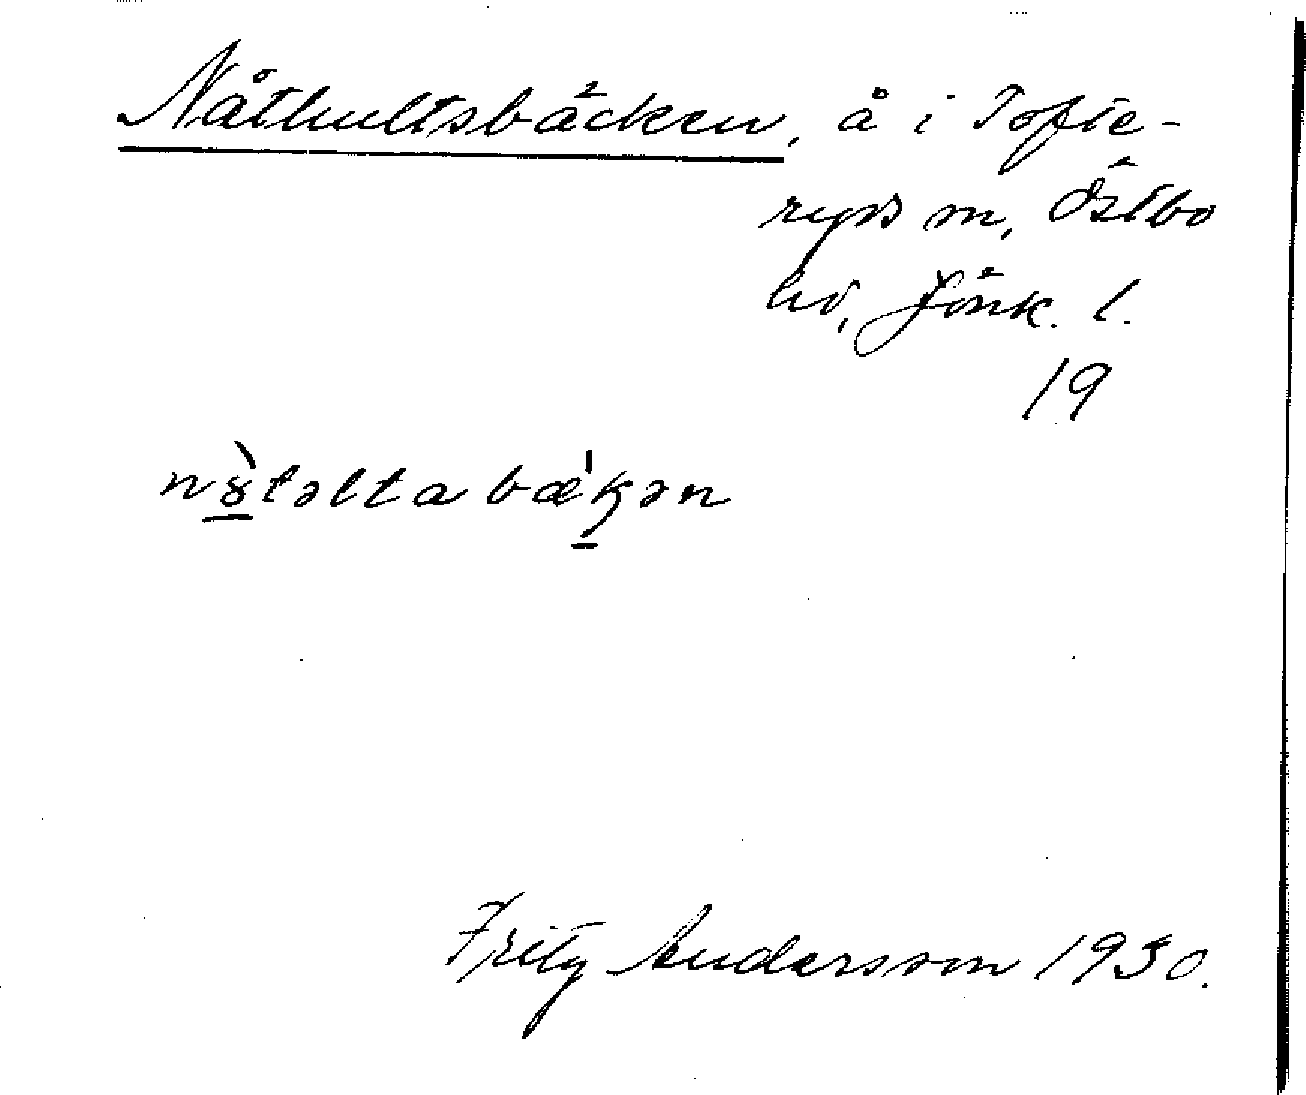 Nåthultsbäcken, å i Tofte-
ryds sn, Östbo
hd, Jönk. l.
19
nȣ̀təltabæ̍kən
Fritz Andersson 1930.